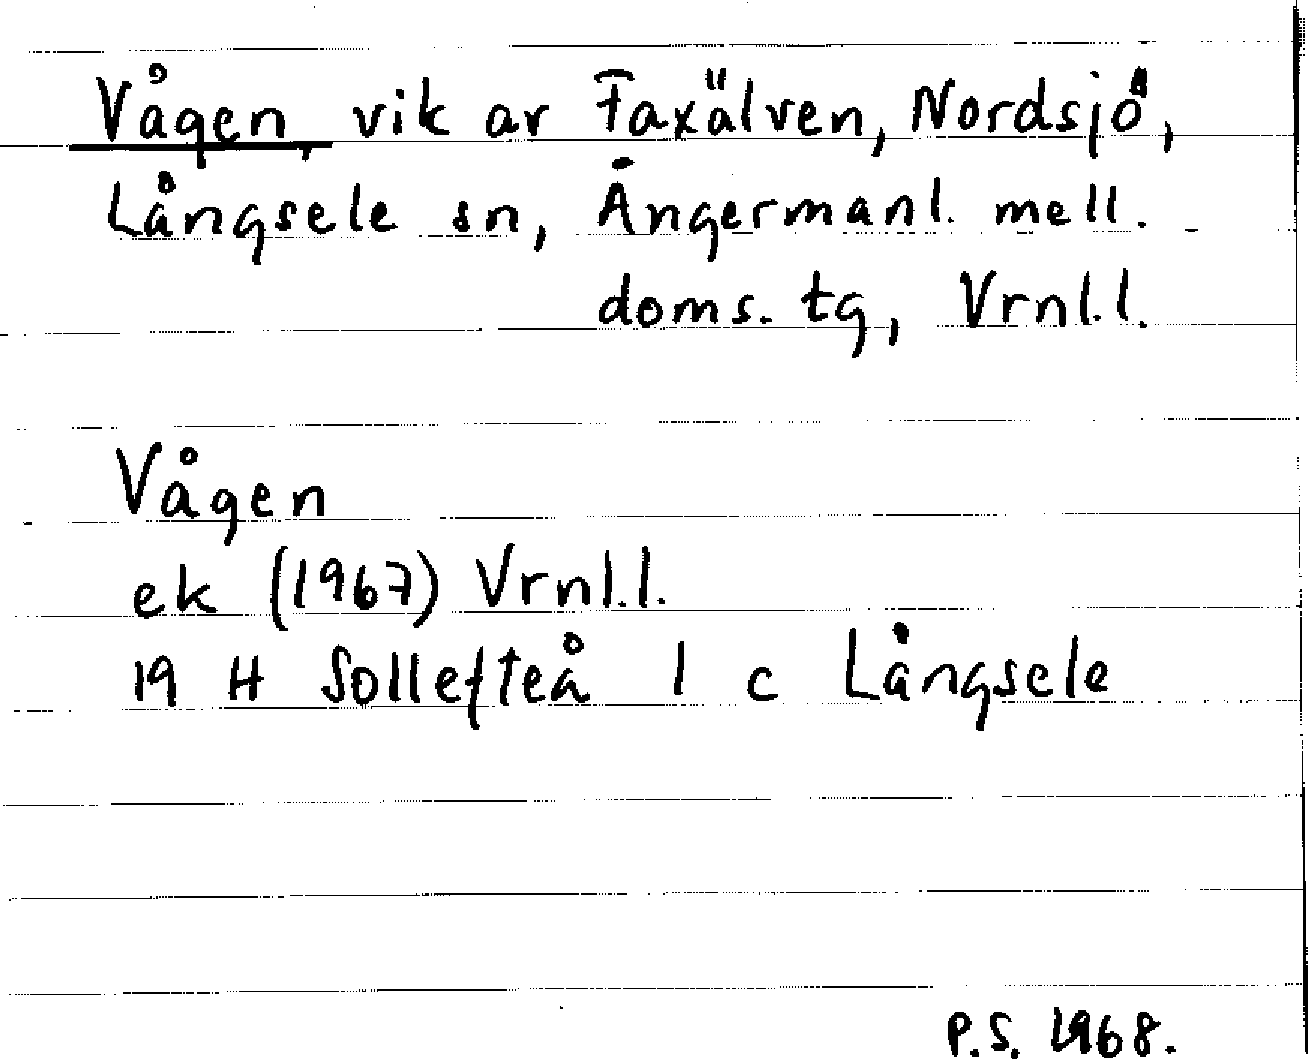 Vågen, vik av Faxälven, Nordsjö,
Långsele sn, Ångermanl. mell.
doms. tg, Vrnl.l.
Vågen
ek (1967) Vrnl.l.
19 H Sollefteå 1 c Långsele
P.S. 1968.